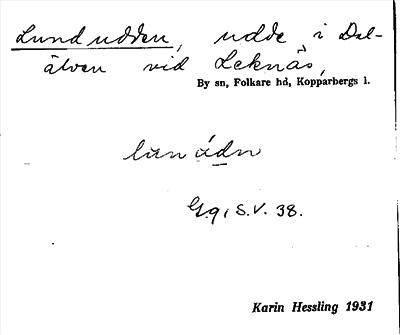 Lundudden, udde i Dal-
älven vid Leknäs,
By sn, Folkare hd, Kopparbergs l.
lun údn
Gg, S.V. 38.
Karin Hessling 1931